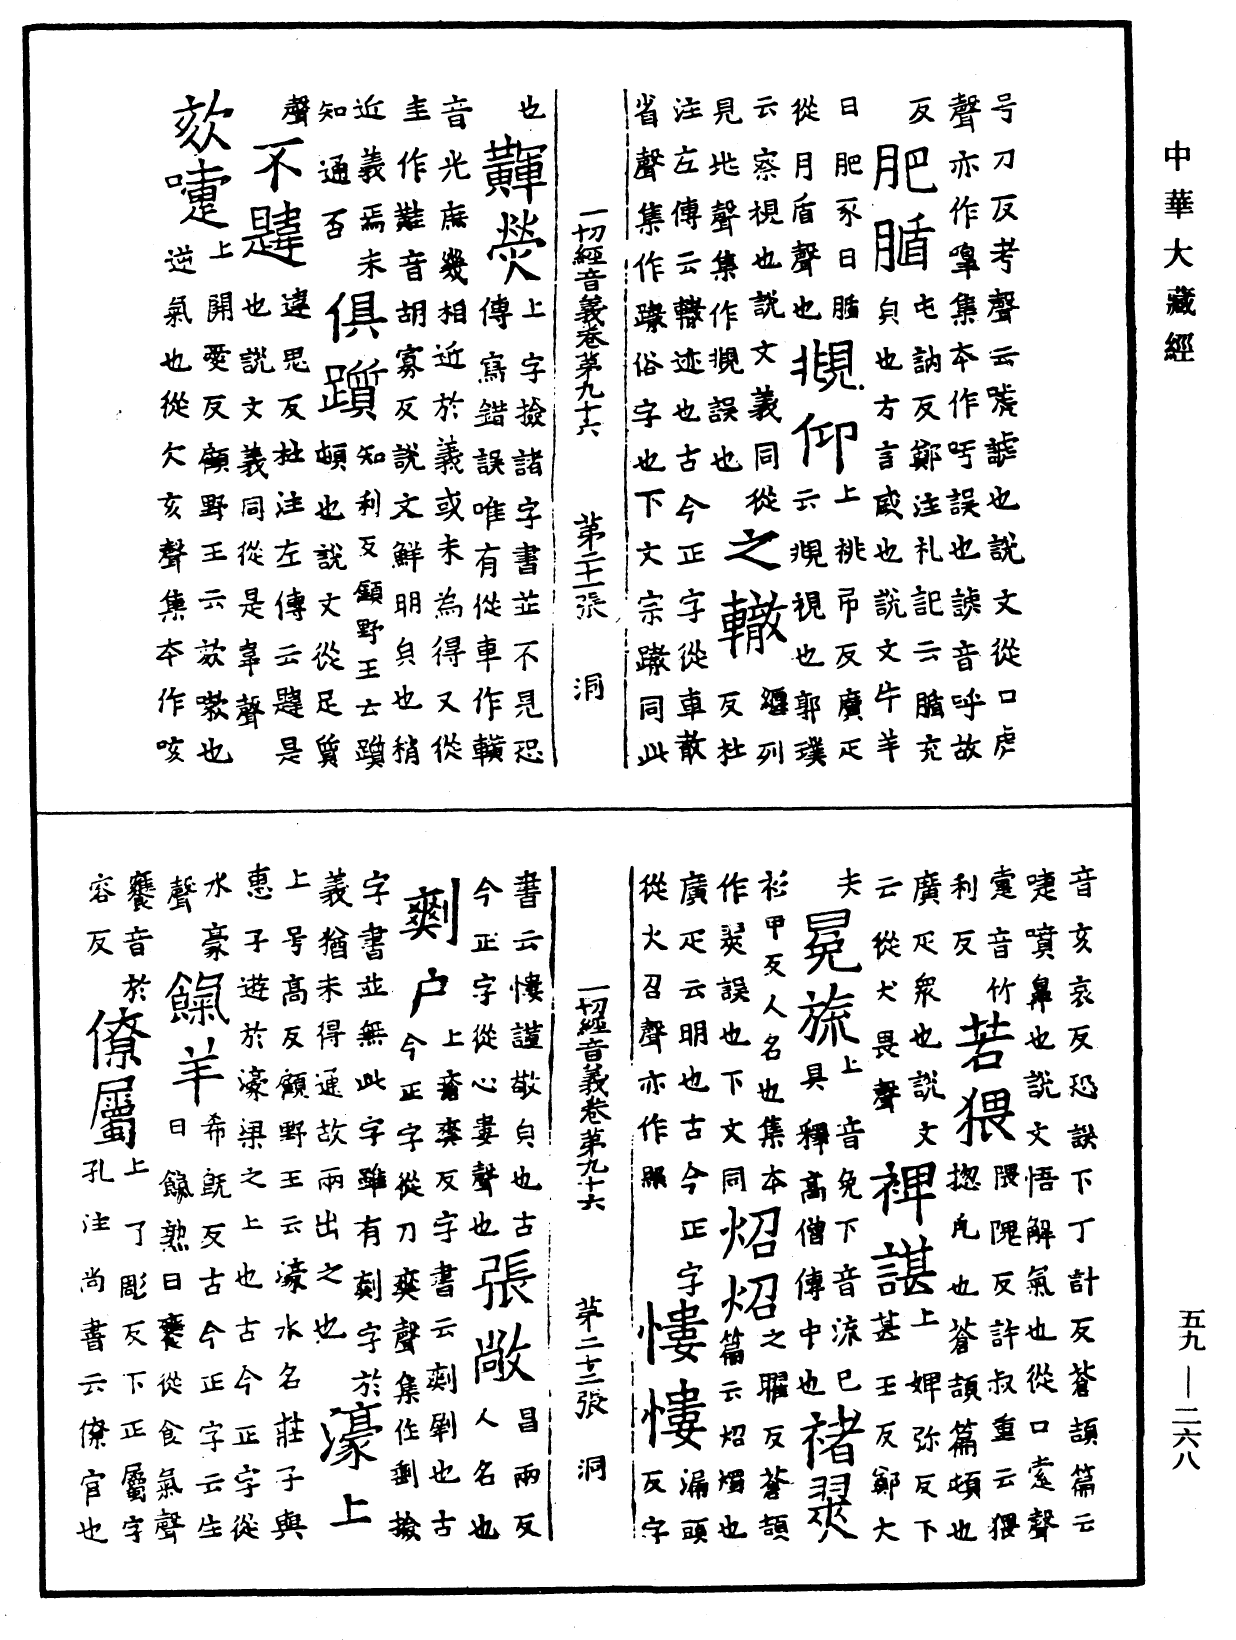 中華大藏經
号刀反考聲云嘷謼也說文從口虖
聲亦作嘷集本作呺誤也謼音呼故
反 肥腯 屯訥反鄭注礼記云腯充
皃也方言盛也說文牛羊
曰肥豕曰腯
從月盾聲也 覜仰 上祧吊反廣疋
云覜視也郭璞
云察視也說文義同從
見兆聲集作覜誤也 之轍 纏列
反杜
注左傳云轍迹也古今正字從車散
省聲集作躐俗字也下文宗躐同此
一切經音義卷第九十六 第二十一張 洞
也 㷸 上字撿諸字書並不見恐
傳寫錯誤唯有從車作轒
音光庶幾相近於義或未為得又從
圭作黊音胡寡反說文鮮明皃也稍
近義焉未
知通否 俱躓 知利反顧野王云躓
頓也說文從足質
聲 不韙 違思反杜注左傳云韙是
也說文義同從是韋聲
欬嚏 上開愛反顧野王云欬嗽也
逆氣也從欠亥聲集本作咳
音亥哀反恐誤下丁計反蒼頡篇云
嚏噴鼻也說文悟解氣也從口疐聲
疐音竹
利反 若猥 隈隗反許叔重云猥
惣凡也蒼頡篇頓也
廣疋眾也說文
云從犬畏聲 裨諶 上婢弥反下
甚壬反鄭大
夫 冕旒 上音免下音流已
具釋高僧傳中也 褚翜
衫甲反人名也集本
作翜誤也下文同 炤炤 之曜反蒼頡
篇云炤燭也
廣疋云明也古今正字
從火召聲亦作照 慺慺 漏頭
反字
一切經音義卷第九十六 第二十二張 洞
書云慺謹敬皃也古
今正字從心婁聲也 張敞 昌兩反
人名也
㓽户 上瘡爽反字書云㓽劉也古
今正字從刀爽聲集作剩撿
字書並無此字雖有㓽字於
義猶未得通故兩出之也 濠上
上号高反顧野王云濠水名莊子與
惠子遊於濠梁之上也古今正字從
水豪
聲 餼羊 希旣反古今正字云生
曰餼熟曰饔從食氣聲
饔音於
容反 僚屬 上了彫反下正屬字
孔注尚書云僚官也
五九—二六八